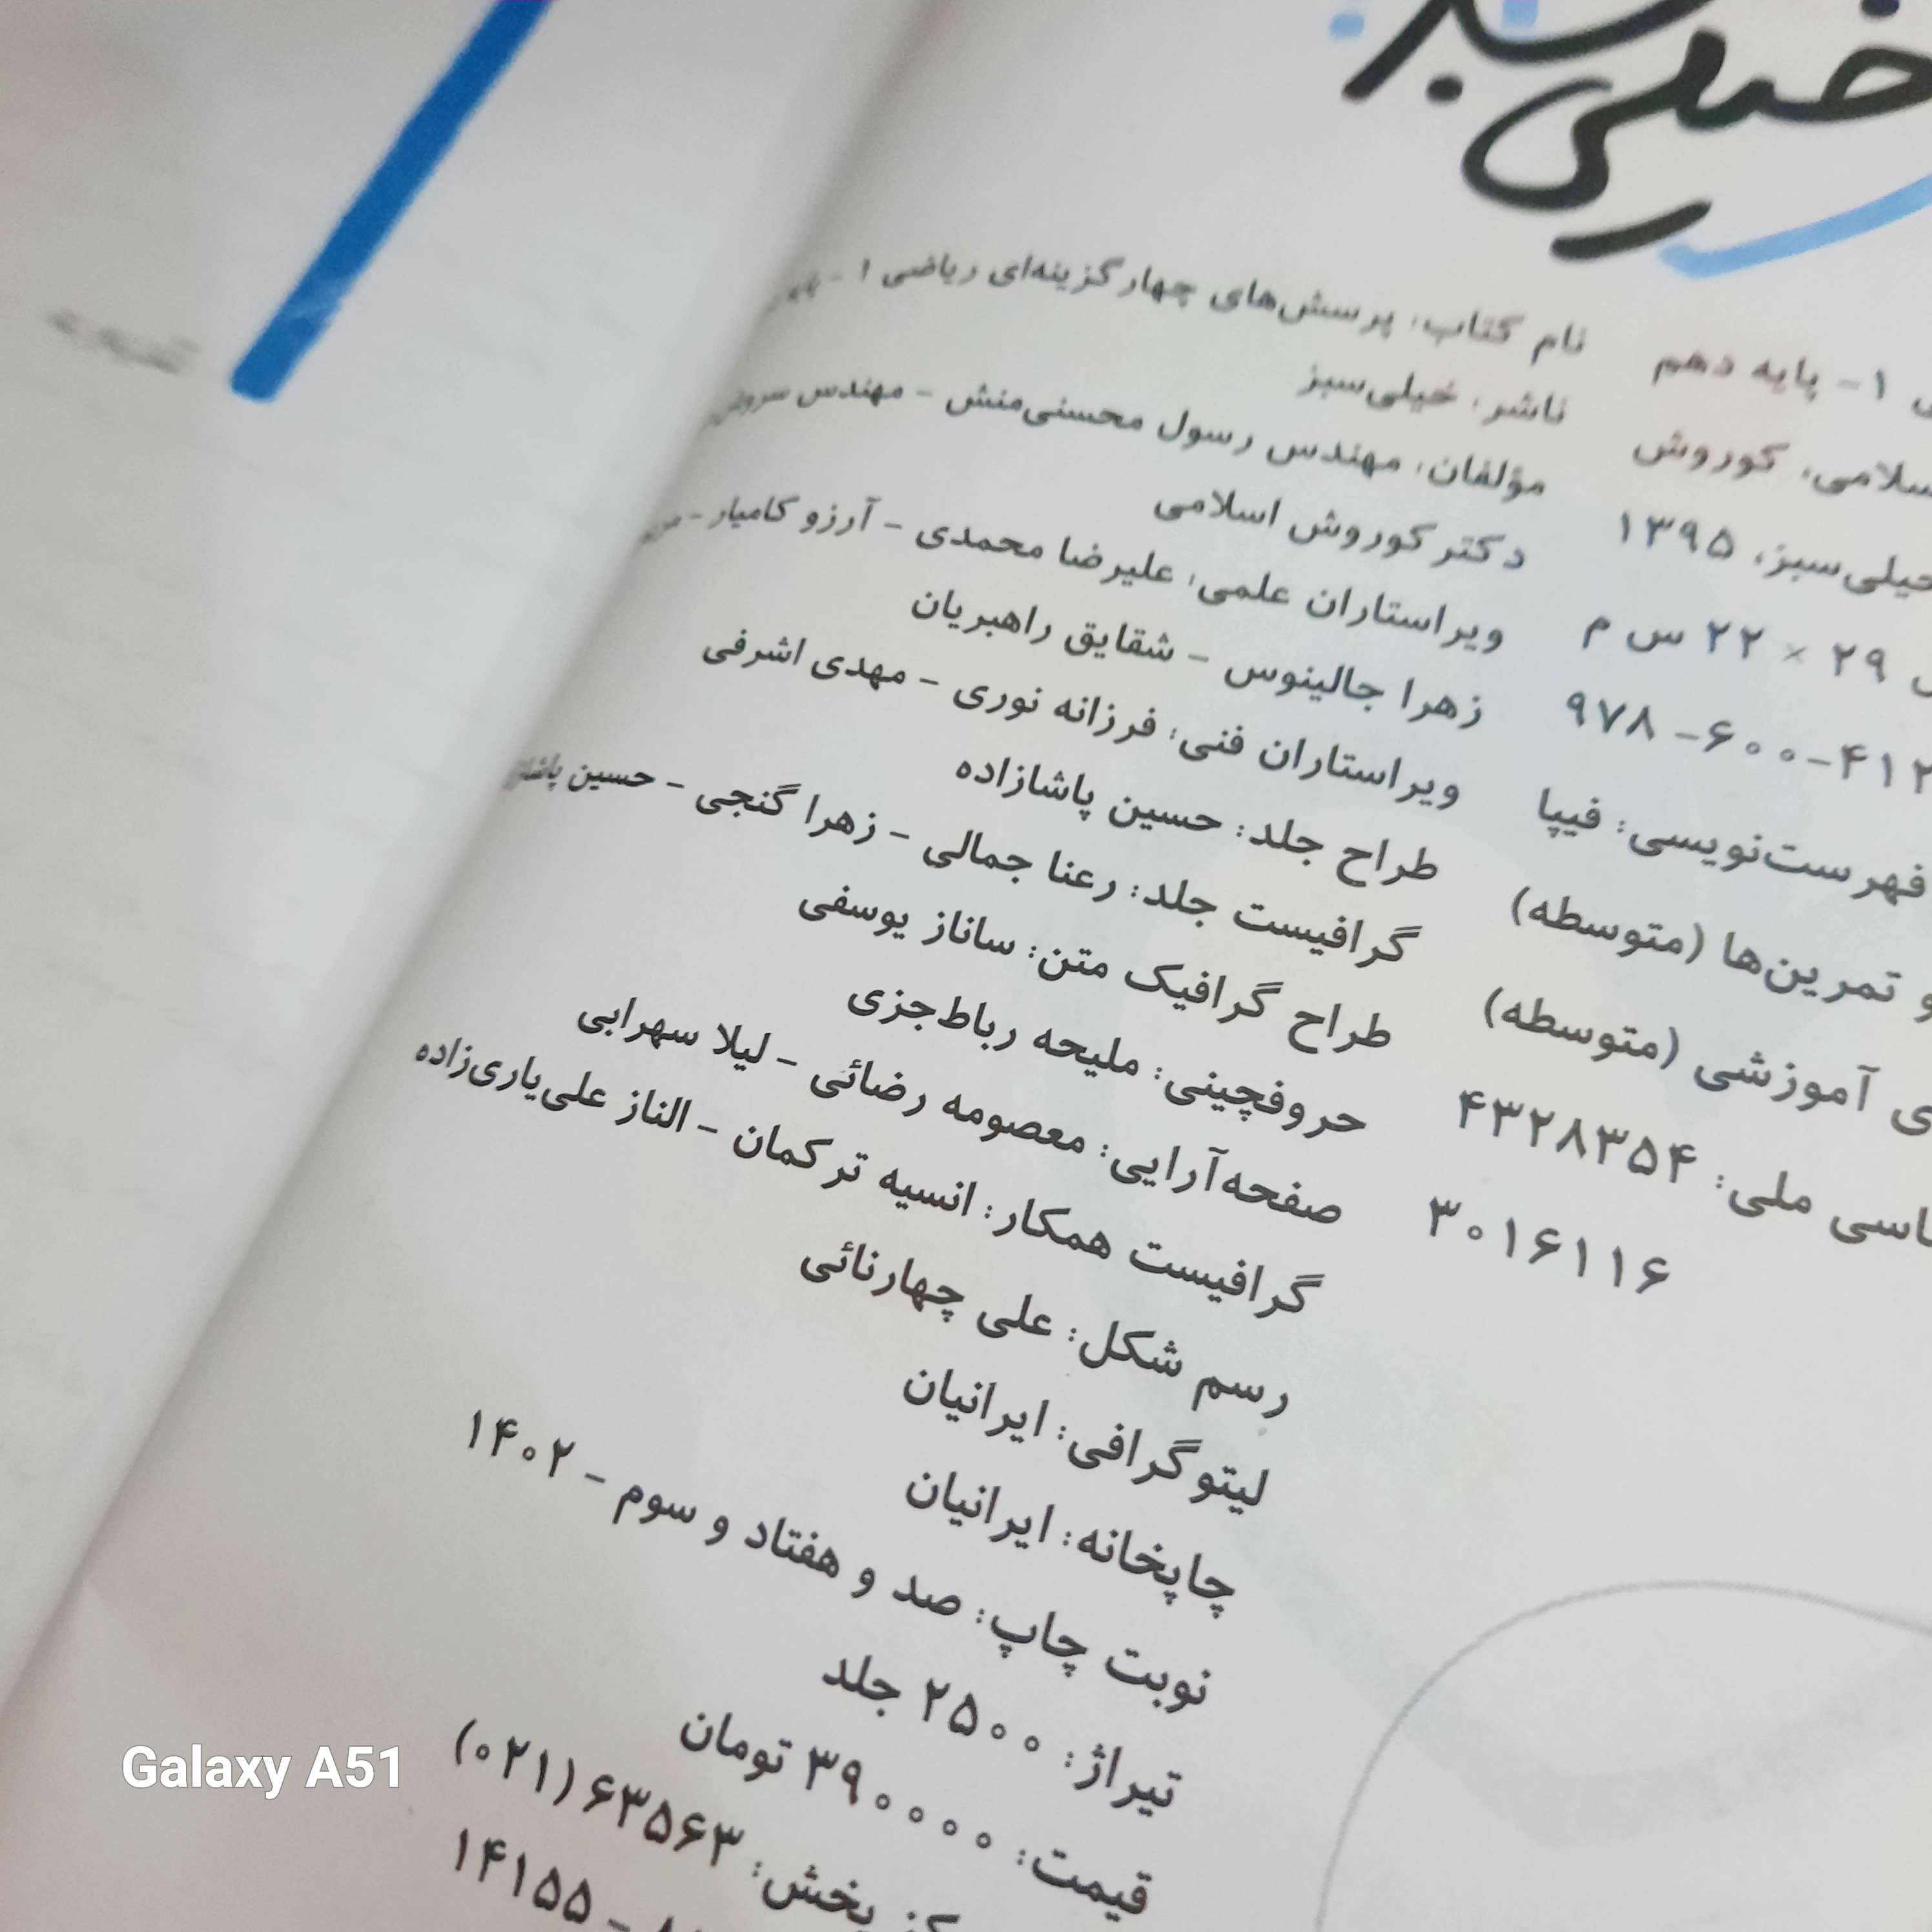 خیلی سبز
۱- پایه دهم
سلامی، کوروش
خیلی‌سبز، ۱۳۹۵
۲۹ × ۲۲ س م
۹۷۸ -۶۰۰-۴۱۲
فهرست‌نویسی: فیپا
و تمرین‌ها (متوسطه)
ی آموزشی (متوسطه)
ملی: ۴۳۲۸۳۵۴
۳۰۱۶۱۱۶
نام کتاب: پرسش‌های چهارگزینه‌ای ریاضی ۱ -
ناشر: خیلی‌سبز
مؤلفان: مهندس رسول محسنی‌منش - مهندس
دکتر کوروش اسلامی
ویراستاران علمی: علیرضا محمدی - آرزو کامیار -
زهرا جالینوس - شقایق راهبریان
ویراستاران فنی: فرزانه نوری - مهدی اشرفی
طراح جلد: حسین پاشازاده
گرافیست جلد: رعنا جمالی - زهرا گنجی - حسین
طراح گرافیک متن: ساناز یوسفی
حروفچینی: ملیحه رباط‌جزی
صفحه‌آرایی: معصومه رضائی - لیلا سهرابی
گرافیست همکار: انسیه ترکمان - الناز علی‌یاری‌زاده
رسم شکل: علی چهارنائی
لیتوگرافی: ایرانیان
چاپخانه: ایرانیان
نوبت چاپ: صد و هفتاد و سوم - ۱۴۰۲
تیراژ: ۲۵۰۰ جلد
قیمت: ۳۹۰۰۰۰ تومان
پخش: ۶۳۵۶۳ (۰۲۱)
- ۱۴۱۵۵
Galaxy A51